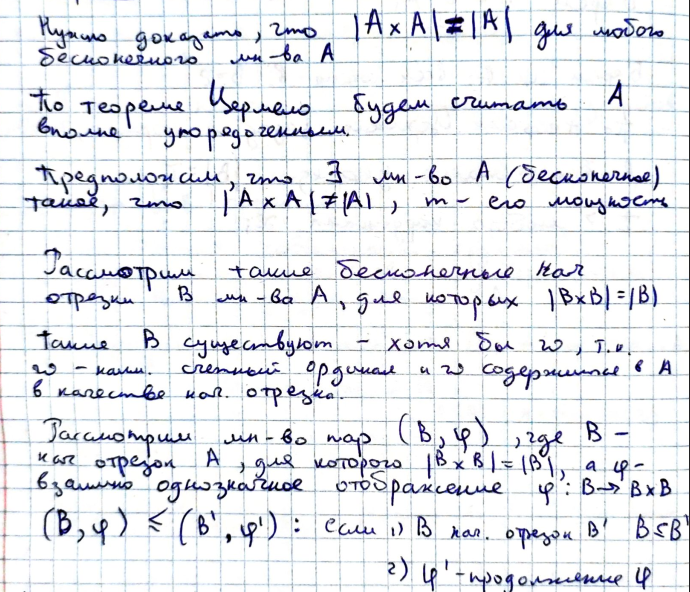 Нужно доказать, что |A × A| = |A| для любого
бесконечного мн-ва A
По теореме Цермело будем считать A
вполне упорядоченным.
Предположим, что ∃ мн-во A (бесконечное)
такое, что |A × A| ≠ |A|, m - его мощность
Рассмотрим такие бесконечные нач
отрезки B мн-ва A, для которых |B×B| = |B|
Такие B существуют - хотя бы ω, т.к.
ω - наим. счетный ординал и ω содержится в A
в качестве нач. отрезка.
Рассмотрим мн-во пар (B, φ), где B -
нач отрезок A, для которого |B × B| = |B|, а φ -
взаимно однозначное отображение φ: B → B × B
(B, φ) ≤ (B', φ'): если 1) B нач. отрезок B' B ≤ B'
2) φ' - продолжение φ